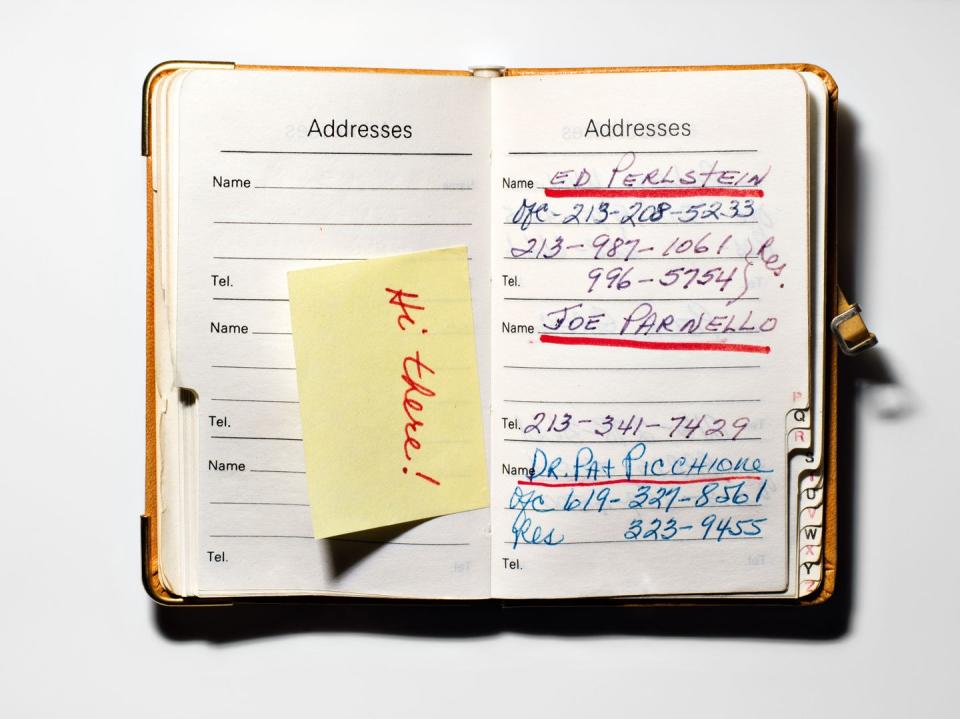 Addresses
Name
Tel.
Name
Tel.
Name
Tel.
Hi there!
Addresses
Name ED PERLSTEIN
Ofc-213-208-5233
213-987-1061 } Res.
Tel. 996-5754
Name JOE PARNELLO
Tel. 213-341-7429
Name DR. PAT PICCHIONE
Ofc 619-327-8561
Res 323-9455
Tel.
P
Q
R
U
V
W
X
Y
Z